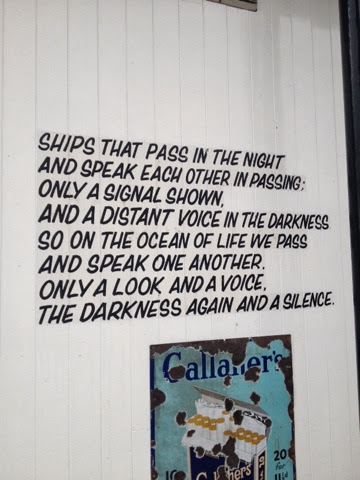 SHIPS THAT PASS IN THE NIGHT
AND SPEAK EACH OTHER IN PASSING;
ONLY A SIGNAL SHOWN,
AND A DISTANT VOICE IN THE DARKNESS
SO ON THE OCEAN OF LIFE WE PASS
AND SPEAK ONE ANOTHER.
ONLY A LOOK AND A VOICE,
THE DARKNESS AGAIN AND A SILENCE.
Gallaher's
20
for
11½d